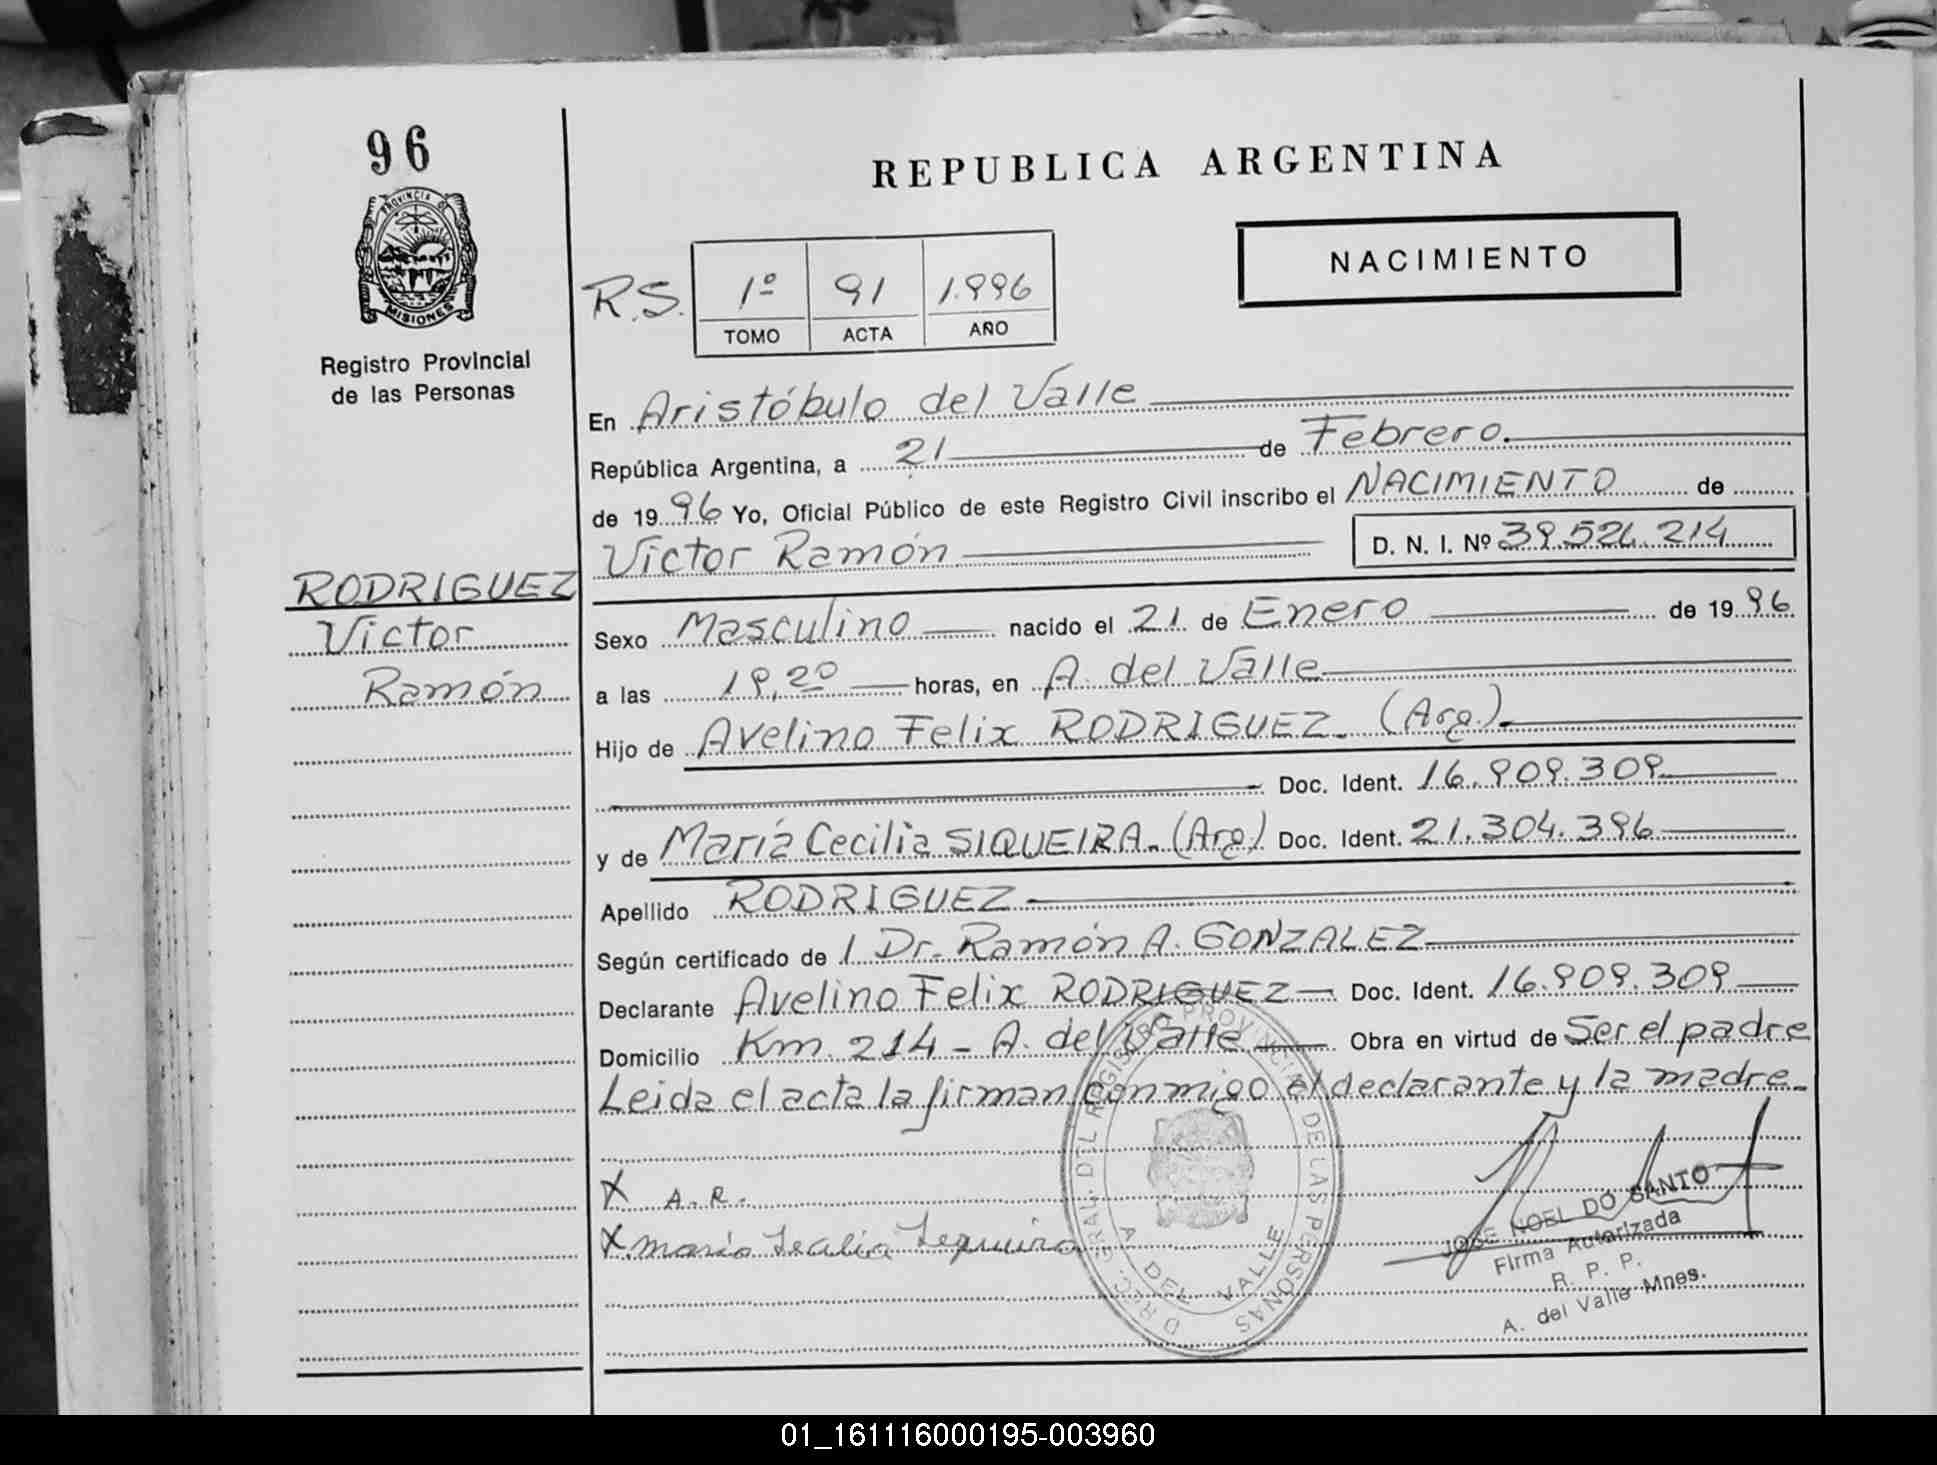 96
REPUBLICA ARGENTINA
PROVINCIA D
MISIONES
Registro Provincial
de las Personas
NACIMIENTO
R.S. 1º 91 1.996
TOMO ACTA AÑO
En Aristóbulo del Valle
República Argentina, a 21 de Febrero.
de 1996 Yo, Oficial Público de este Registro Civil inscribo el NACIMIENTO de
Victor Ramón D. N. I. Nº 39.526.214
RODRIGUEZ
Victor
Ramón
Sexo Masculino nacido el 21 de Enero de 1996
a las 19,20 horas, en A. del Valle
Hijo de Avelino Felix RODRIGUEZ. (Arg.).
Doc. Ident. 16.909.309
y de María Cecilia SIQUEIRA. (Arg) Doc. Ident. 21.304.396
Apellido RODRIGUEZ
Según certificado de / Dr. Ramón A. GONZALEZ
Declarante Avelino Felix RODRIGUEZ Doc. Ident. 16.909.309
Domicilio Km. 214 - A. del Valle Obra en virtud de Ser el padre
Leida el acta la firman conmigo el declarante y la madre.
X A.R.
X maria
GRAL. DEL REGISTRO PROVINCIAL DE LAS PERSONAS
A. DEL VALLE
JOSE NOEL DO SANTO
Firma Autorizada
R. P. P.
A. del Valle Mnes.
01_161116000195-003960